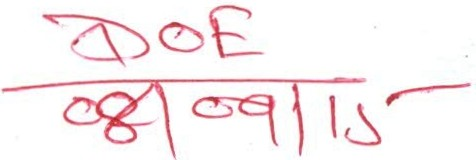 DOE
08/09/15